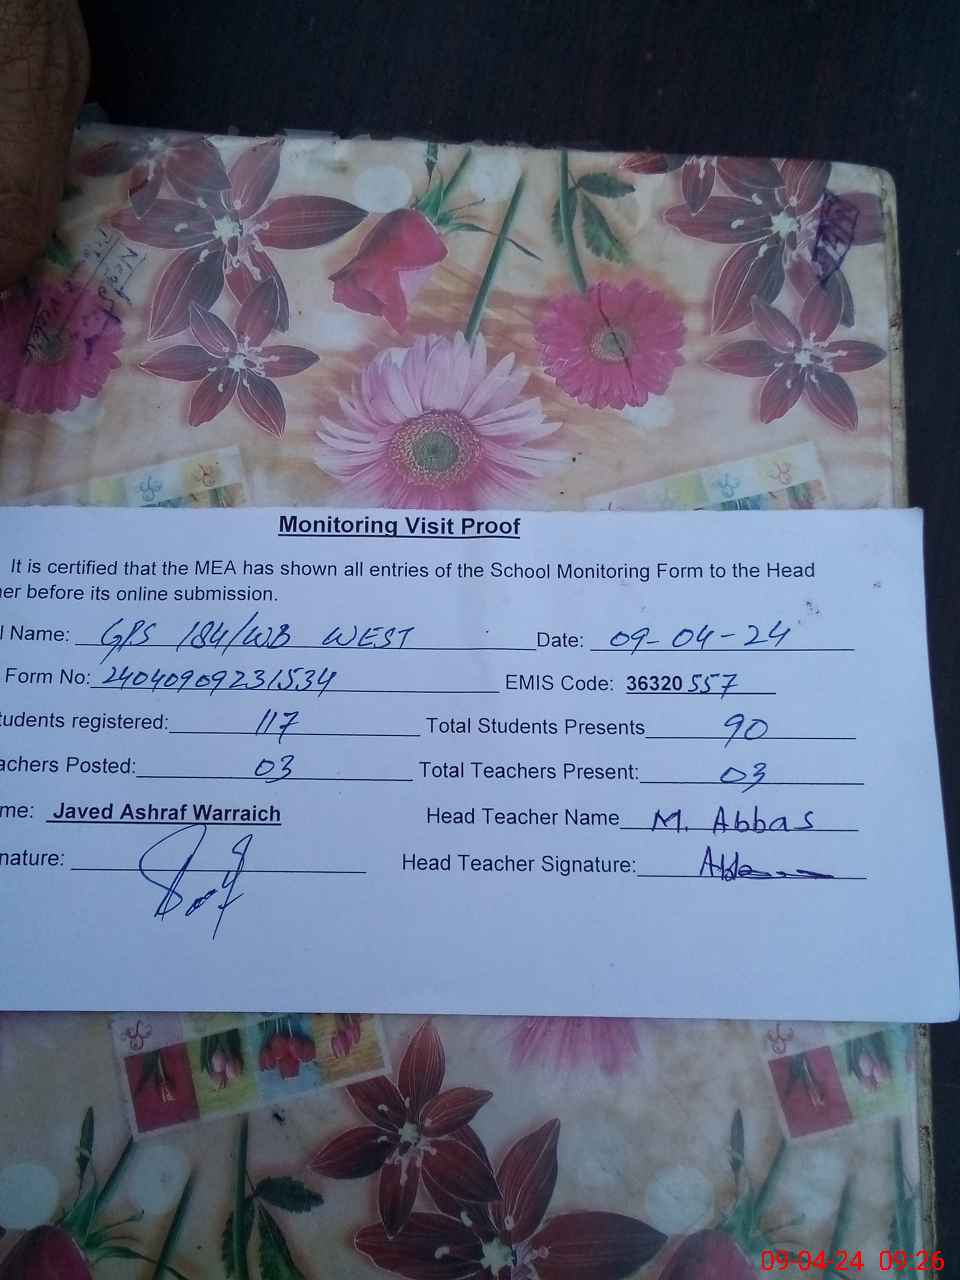 Monitoring Visit Proof
It is certified that the MEA has shown all entries of the School Monitoring Form to the Head
er before its online submission.
l Name: GPS 184/WB WEST Date: 09-04-24
Form No: 24040909231534 EMIS Code: 36320 557
tudents registered: 117 Total Students Presents 90
achers Posted: 03 Total Teachers Present: 03
me: Javed Ashraf Warraich Head Teacher Name M. Abbas
nature: Head Teacher Signature:
09-04-24 09:26